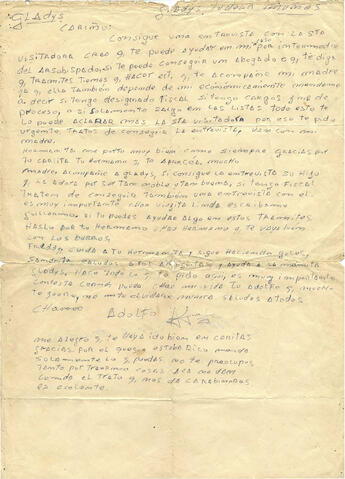 GLADYS
CARIÑO:
CONSIGUE UMA ENTREVISTA CON LA STA
VISITADORA CREO Q, TE PUEDE AYUDAR EM MI POR IMTERMEDIO
DEL ARSOBISPADO, SI TE PUEDE CONSEGUIR UM ABOGADO Q, TE DIGA
Q, TRAMITES TIEMES Q, HACER ETC, Q, TE ACOMPAÑE MI MADRE
YA Q, ELLA TAMBIEM DEPEMDE DE MI ECOMOMICAMENTE
A DECIR SI TEMGO DESIGNADO FISCAL SI TEMGO CARGOS Y Mº DE
PROCESO, O SI SOLAMENTE SALGO EM LAS LISTAS TODO ESTO TE
LO PUEDE ACLARAR MAS LA STA VISITADORA POR ESO TE PIDO
URGENTE TRATES DE CONSEGUIR LA EMTREVISTA, VEAS CON MI
MADRE.
HERMAMITA ME PORTO MUY BIEM COMO SIEMPRE GRACIAS POR
TU CARTITA TU HERMAMO Q, TE APRECIA MUCHO
MADRE: ACOMPAÑE A GLADYS, SI CONSIGUE LA EMTREVISTA SU HIJO
Q, LA ADORA POR SER TAM MOBLE Y TAM BUEMA, SI TEMGO FISCAL
TRATEM DE CONSEGUIR TAMBIEM UMA EMTREVISTA CON EL
ES MUY IMPORTANTE CHAO VIEJITA LIMDA ESCRIBAMO
GUILLERMO: SI TU PUEDES AYUDAR ALGO EM ESTOS TRAMITES
HASLO POR TU HERMAMO CHAO HERMAMO Q, TE VAYA BIEM
CON LOS BURROS.
FREDDY CUIDA A TU HERMAMITA Y SIGUE HACIENDO GOLES,
SAMDRITA SALUDOS A LAS Y AYUDA A LA MAMITA
GLADYS, HACE TODO LO Q, TE PIDO AQUI, ES MUY IMPORTANTE
CONTESTA CHAO MI VIDA TU ADOLFO Q, MUCHO
TE QUIERE, MO ME OLVIDARE MUMCA SALUDOS A TODOS
CHAOOO
ADOLFO
ME ALEGRO Q, TE VAYA IDO BIEM EM COMITAS
GRACIAS POR EL QUESO ESTABA RICO MAMDA
SOLAMEMTE LO Q, PUEDAS MO TE PREOCUPES
TAMTO POR TRAERME COSAS ACA MO DEM
COMIDA EL TRATO Q, MOS DA CARABIMEROS
ES EXCELENTE.